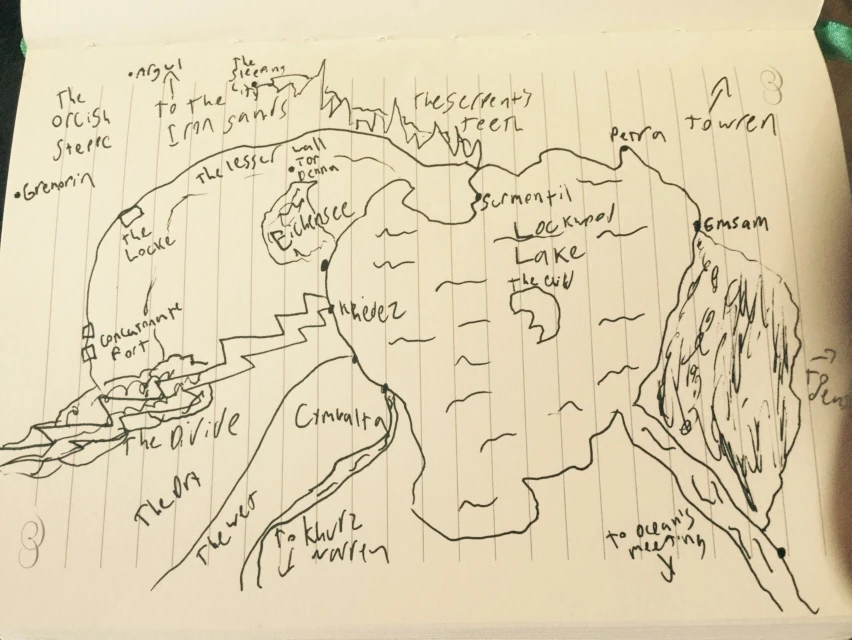 The
Orcish
Steppe
• Argul
To the
Iron sands
The
Sleeping
City
The serpent's
Teeth
To wren
• Grenorin
The lesser wall
• Tor
Denna
Petra
Surmentil
Emsam
Eichensee
The
Locke
Lockwood
Lake
The Child
Khidez
Concatenate
Fort
Cymbalta
The Divide
The Dry
The wet
To Khurz
narren
To Ocean's
meeting